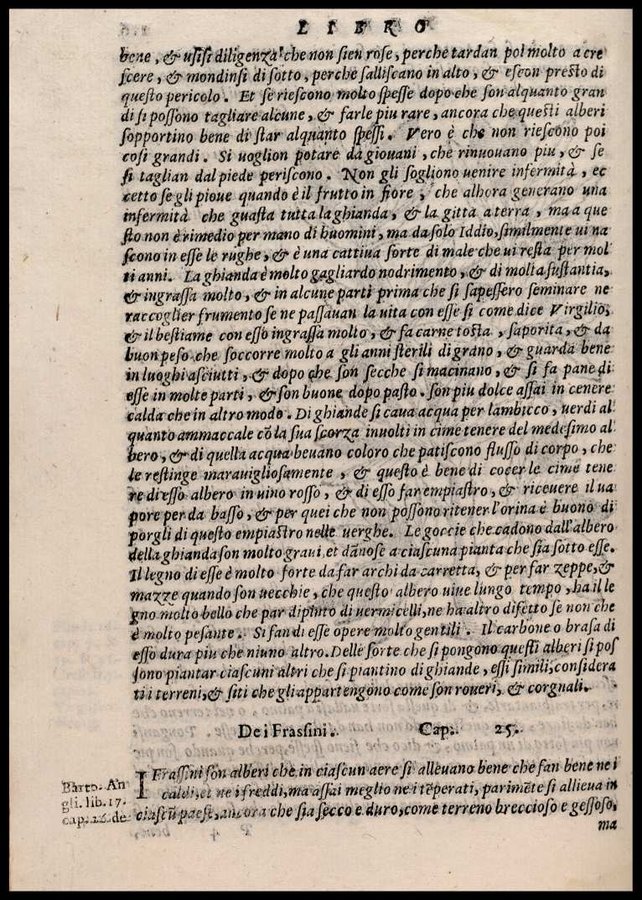 LIBRO
bene, & usisi diligenza che non sien rose, perche tardan poi molto a cre
scere, & mondinsi di sotto, perche salliscano in alto, & escon presto di
questo pericolo. Et se riescono molto spesse dopo che son alquanto gran
di si possono tagliare alcune, & farle piu rare, ancora che questi alberi
sopportino bene di star alquanto spessi. Vero è che non riescono poi
cosi grandi. Si voglion potare da giovani, che rinuouano piu, & se
si taglian dal piede periscono. Non gli sogliono uenire infermità, ec
cetto se gli pioue quando è il frutto in fiore, che alhora generano una
infermità che guasta tutta la ghianda, & la gitta a terra, ma a que
sto non è rimedio per mano di huomini, ma da solo Iddio, similmente ui na
scono in esse le rughe, & è una cattiua sorte di male che ui resta per mol
ti anni. La ghianda è molto gagliardo nodrimento, & di molta sustantia,
& ingrassa molto, & in alcune parti prima che si sapessero seminare ne
raccoglier frumento se ne passauan la uita con esse si come dice Virgilio,
& il bestiame con esso ingrassa molto, & fa carne tosta, saporita, & da
buon peso che soccorre molto a gli anni sterili di grano, & guarda bene
in luoghi asciutti, & dopo che son secche si macinano, & si fa pane di
esse in molte parti, & son buone dopo pasto. son piu dolce assai in cenere
calda che in altro modo. Di ghiande si caua acqua per lambicco, uerdi al
quanto ammaccale cō la sua scorza inuolti in cime tenere del medesimo al
bero, & di quella acqua beuano coloro che patiscono flusso di corpo, che
le restinge marauigliosamente, & questo è bene di cocer le cime tene
re di esso albero in uino rosso, & di esso far empiastro, & riceuere il ua
pore per da basso, & per quei che non possono ritener l'orina è buono di
porgli di questo empiastro nelle uerghe. Le goccie che cadono dall'albero
della ghianda son molto graui, et dānose a ciascuna pianta che sia sotto esse.
Il legno di esse è molto forte da far archi da carretta, & per far zeppe, &
mazze quando son uecchie, che questo albero uiue lungo tempo, ha il le
gno molto bello che par dipinto di uermicelli, ne ha altro difetto se non che
è molto pesante. Si fan di esse opere molto gentili. Il carbone o brasa di
esso dura piu che niuno altro. Delle sorte che si pongono questi alberi si pos
sono piantar ciascuni altri che si piantino di ghiande, essi simili, considera
ti i terreni, & siti che gli appartengono come son roueri, & corgnali.
De i Frassini. Cap. 25.
I Frassini son alberi che in ciascun aere si alleuano bene che fan bene ne i
caldi, et ne i freddi, ma assai meglio ne i tēperati, parimēte si allieua in
ciascū paese, ancora che sia secco e duro, come terreno breccioso e gessoso,
Barto. An
gli. lib. 17.
cap. de
ma